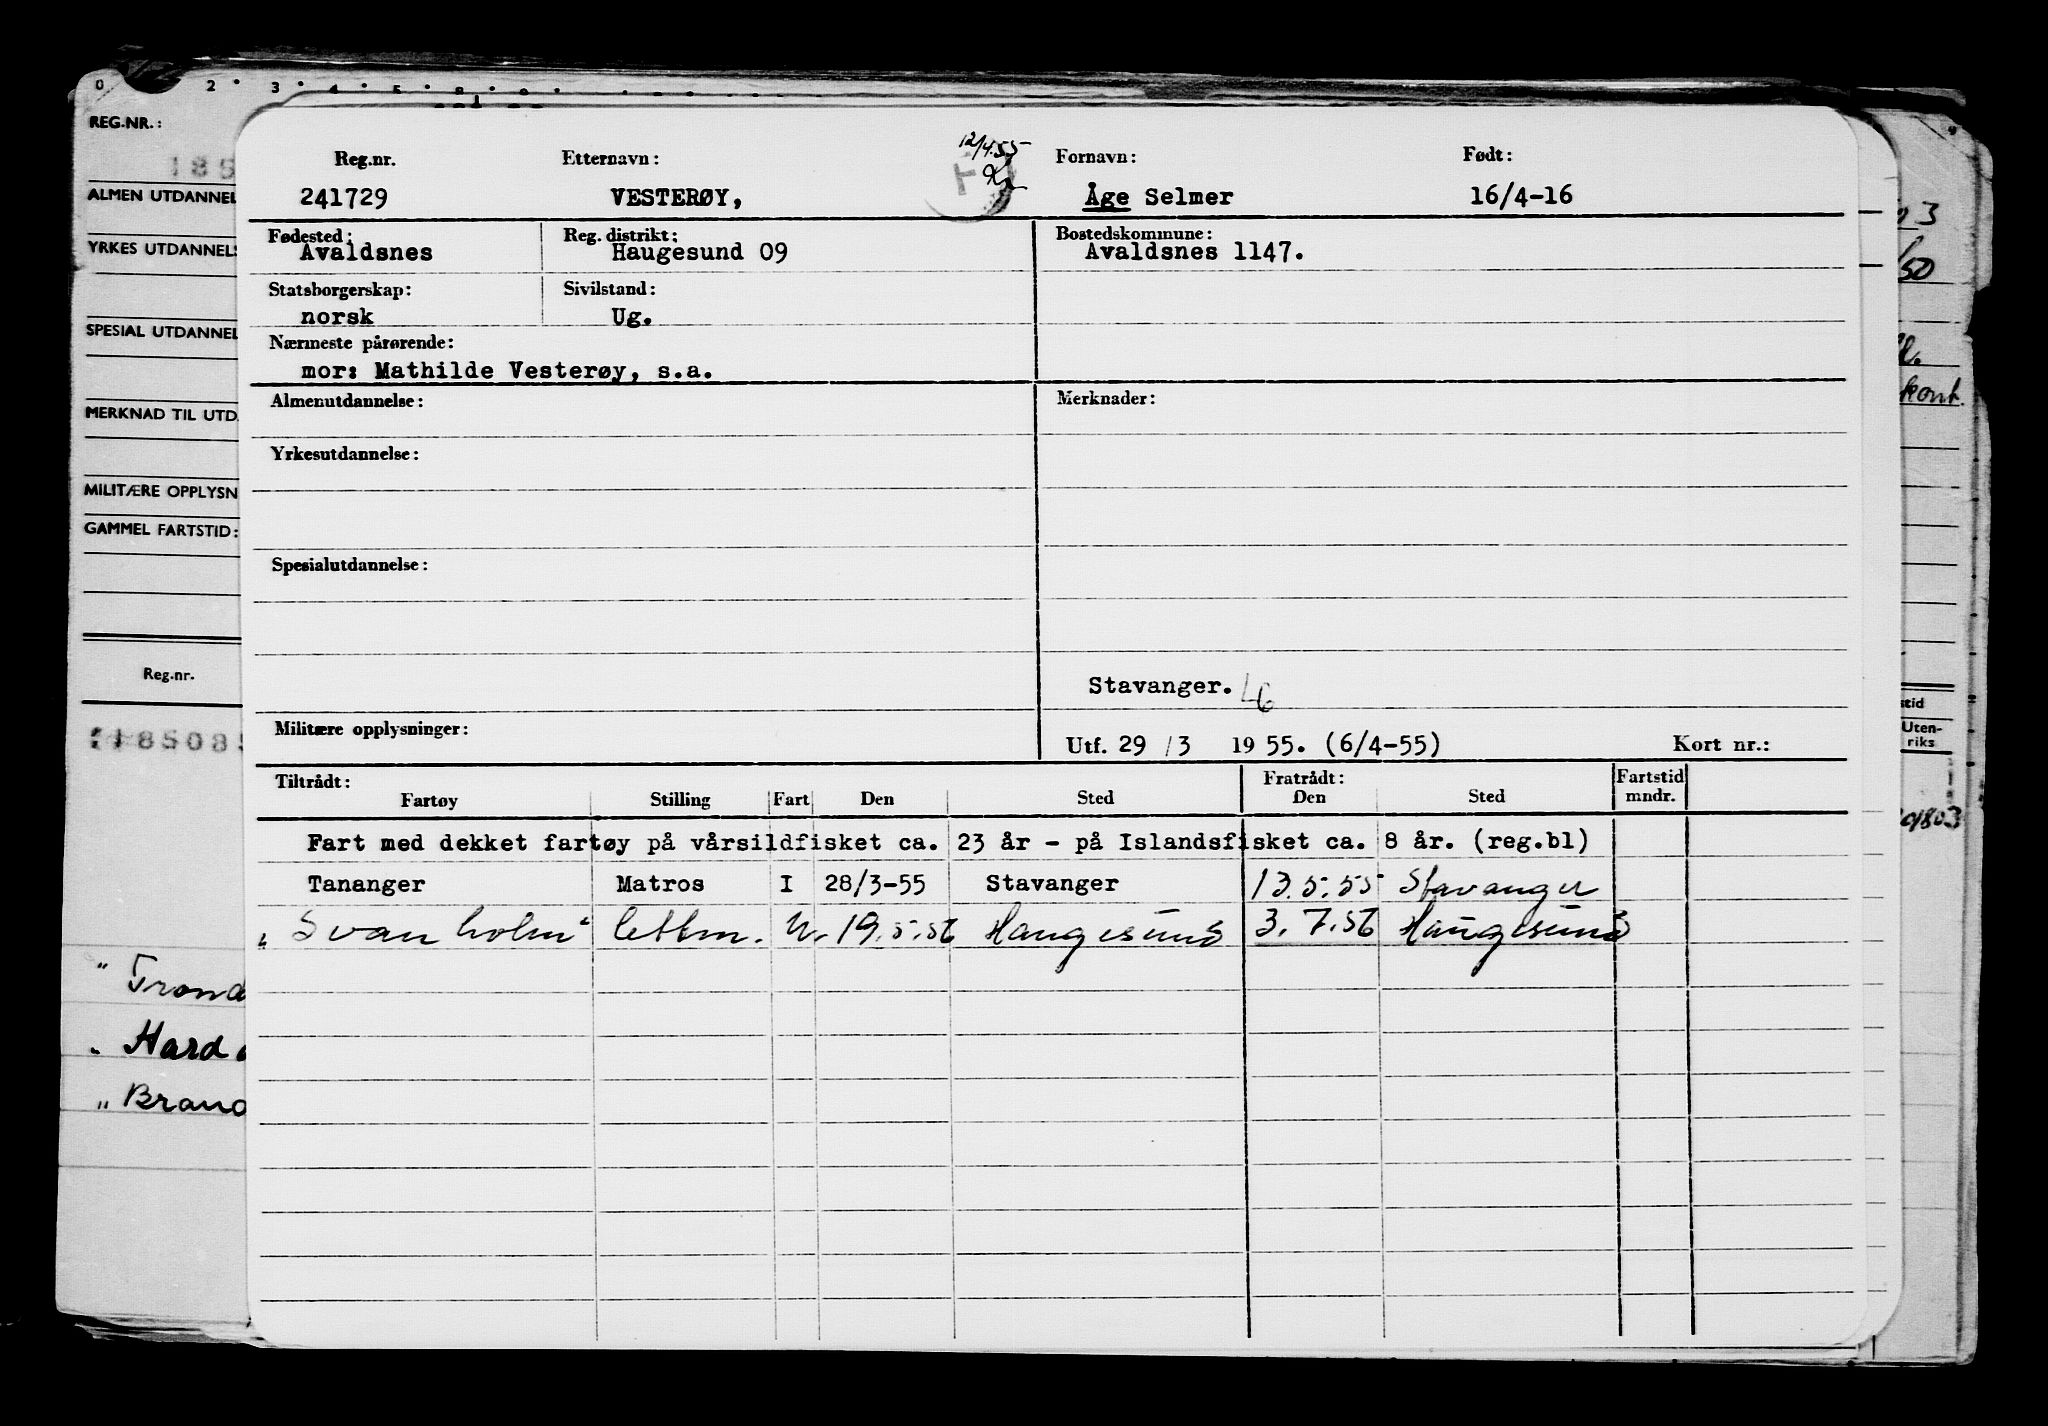 0 2 · 3 · 4 · 5 · 8 · 9 ·
REG.NR.:
185
ALMEN UTDANNEL
YRKES UTDANNELS
SPESIAL UTDANNEL
MERKNAD TIL UTD
MILITÆRE OPPLYSN
GAMMEL FARTSTID:
Reg.nr.
185085
" Trond
" Hard
" Brand
12/4.55
Reg.nr. Etternavn: Fornavn: Født:
241729 VESTERØY, Åge Selmer 16/4-16
Fødested: Reg. distrikt: Bostedskommune:
Avaldsnes Haugesund 09 Avaldsnes 1147.
Statsborgerskap: Sivilstand:
norsk Ug.
Nærmeste pårørende:
mor: Mathilde Vesterøy, s.a.
Almenutdannelse: Merknader:
Yrkesutdannelse:
Spesialutdannelse:
Stavanger.
Militære opplysninger:
Utf. 29/3 1955. (6/4-55) Kort nr.:
Tiltrådt: Fratrådt: Fartstid
Fartøy Stilling Fart Den Sted Den Sted mndr.
Fart med dekket fartøy på vårsildfisket ca. 23 år - på Islandsfisket ca. 8 år. (reg.bl)
Tananger Matros I 28/3-55 Stavanger 13.5.55 Stavanger
"Svanholm" lettm. U. 19.5.56 Haugesund 3.7.56 Haugesund
3
/50
kont.
stid
Uten-
riks
9803